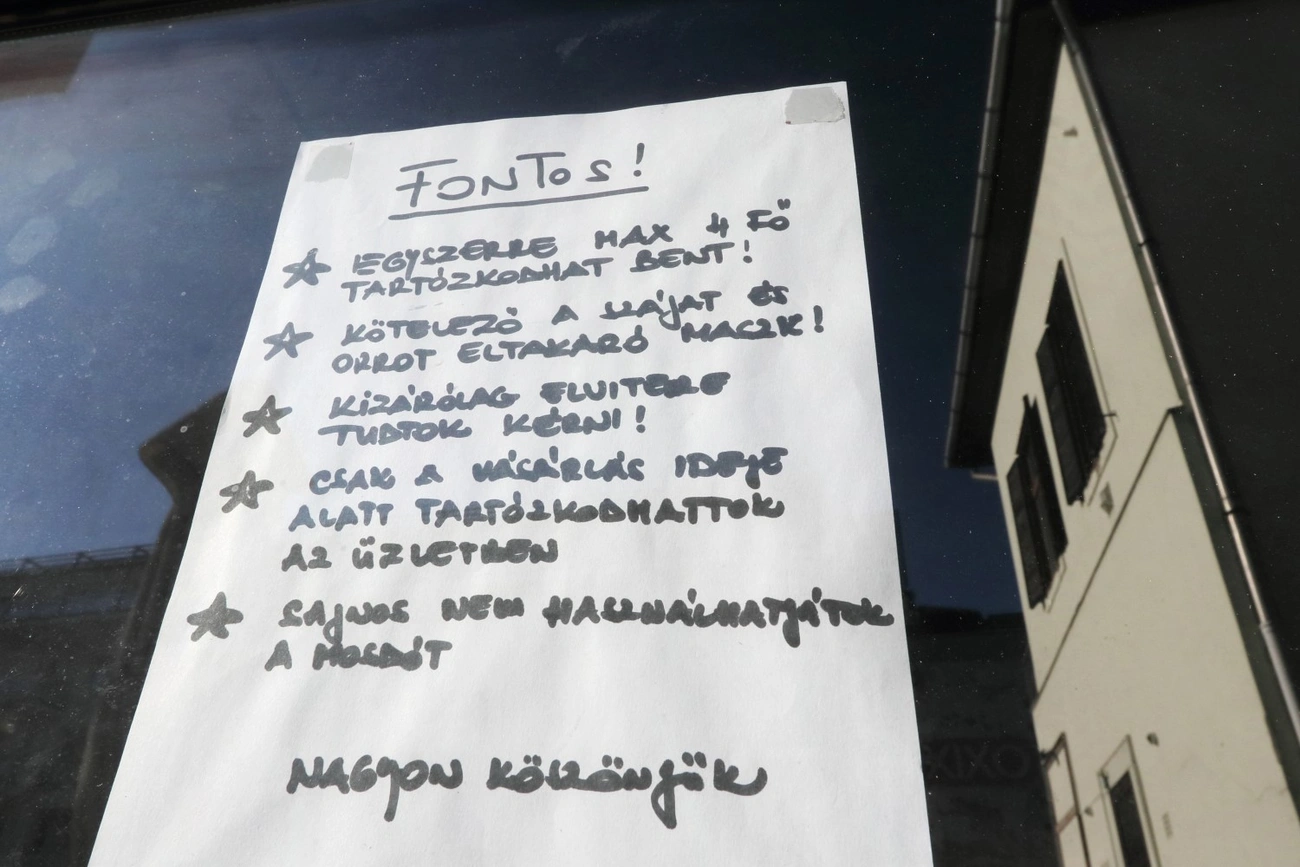 FONTOS!
EGYSZERRE MAX 4 FŐ
TARTÓZKODHAT BENT!
KÖTELEZŐ A SZÁJAT ÉS
ORROT ELTAKARÓ MASZK!
KIZÁRÓLAG ELVITELRE
TUDTOK KÉRNI!
CSAK A VÁSÁRLÁS IDEJE
ALATT TARTÓZKODHATTOK
AZ ÜZLETBEN
SAJNOS NEM HASZNÁLHATJÁTOK
A MOSDÓT
NAGYON KÖSZÖNJÜK